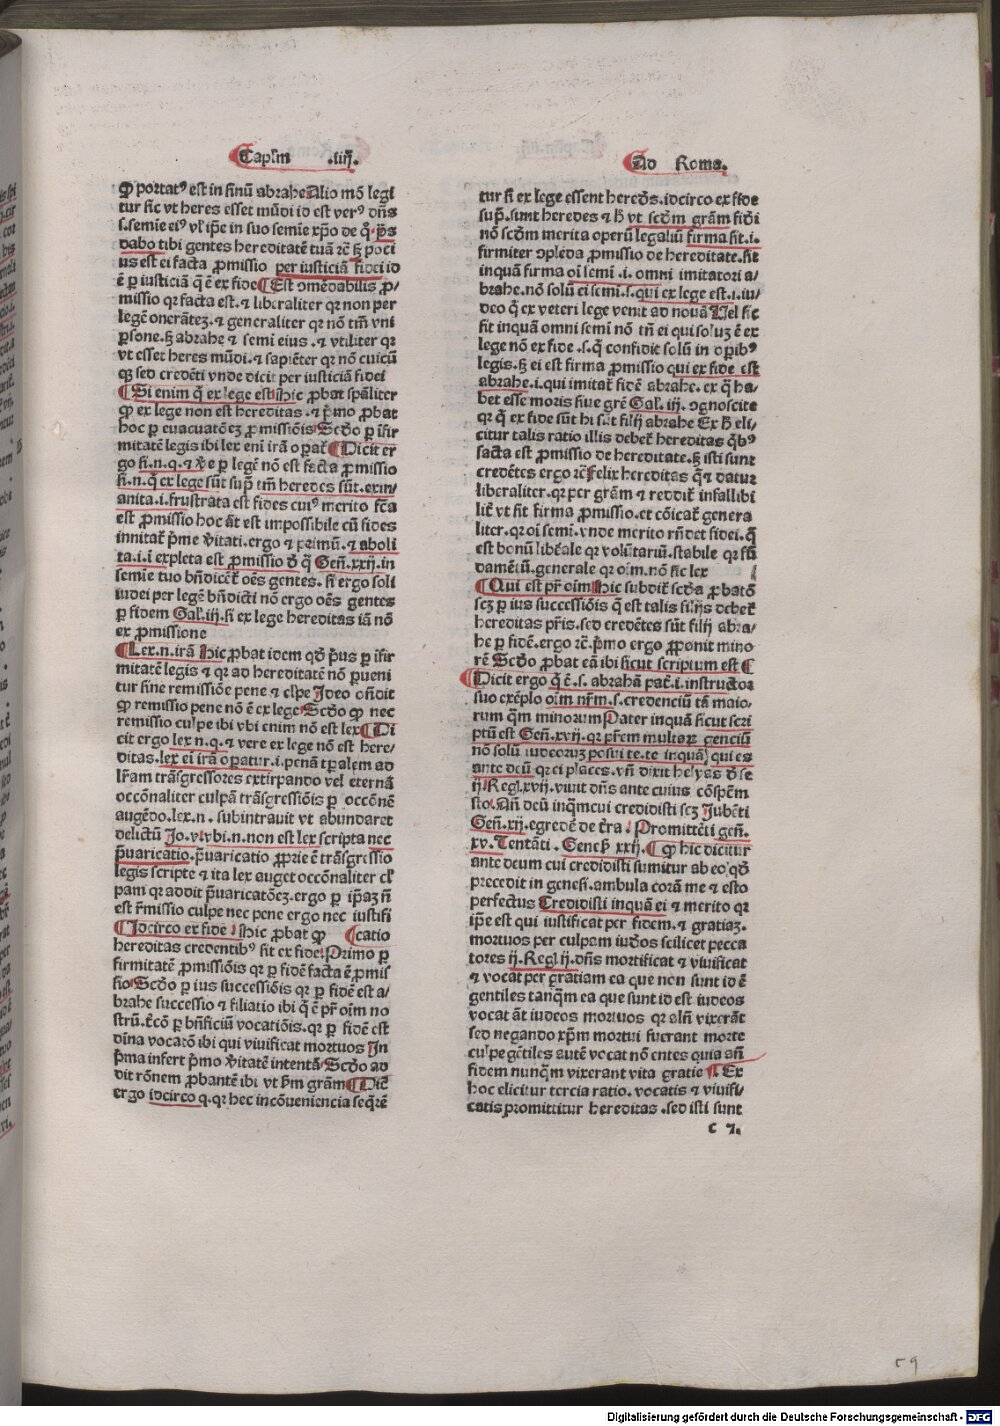 Capłm .iiij.
Ad Roma.
ꝙ portatꝰ est in sinū abrahe Alio mō legi
tur sic vt heres esset mūdi id est verꝰ dn̄s
s. semīe eiꝰ vl̓ ip̄e in suo semīe xp̄o de q̊. p̄s
dabo tibi gentes hereditatē tuā rc̄ ꝫ poci
us est ei facta ꝓmissio per iusticiā fidei id
ē ꝑ iusticiā q̄ ē ex fide Est ↄmēdabilis ꝓ
missio qꝛ facta est. ⁊ liberaliter qꝛ non per
legē onerātez. ⁊ generaliter qꝛ nō tm̄ vni
ꝑsone. ꝫ abrahe ⁊ semi eius . ⁊ vtiliter qꝛ
vt esset heres mūdi. ⁊ sapiēter qꝛ nō cuicū
qꝫ sed credēti vnde dicit per iusticiā fidei
Si enim q̄ ex lege est Hic ꝓbat spāliter
ꝙ ex lege non est hereditas . ⁊ p̄mo ꝓbat
hoc ꝑ euacuatōez ꝓmissiōis Scd̄o ꝑ īfir
mitatē legis ibi lex eni irā oꝑat̉ Dicit er
go si. n. q. ⁊ v̄e ꝑ legē nō est facta ꝓmissio
si. n. q̄ ex lege sūt sup̄ tm̄ heredes sūt. exin
anita. i. frustrata est fides cuiꝰ merito fc̄a
est ꝓmissio hoc āt est impossibile cū fides
innitat̉ p̄me v̄itati. ergo ⁊ primū. ⁊ aboli
ta. i. ī expleta est ꝓmissio d̄ q̄ Gen̄. xxij. in
semīe tuo bn̄dicēt̉ oēs gentes. si ergo soli
iudei per legē bn̄dicti nō ergo oēs gentes
ꝑ fidem Gal. iij. si ex lege hereditas iā nō
ex ꝓmissione
Lex. n. irā Hic ꝓbat idem qd̄ p̄us ꝑ īfir
mitatē legis ⁊ qꝛ ad hereditatē nō ꝑueni
tur sine remissiōe pene ⁊ cl̓pe Ideo on̄dit
ꝙ remissio pene nō ē ex lege Scd̄o ꝙ nec
remissio culpe ibi vbi enim nō est lex Di
cit ergo lex n. q. ⁊ vere ex lege nō est here
ditas. lex ei irā oꝑatur. i. penā tꝑalem ad
lr̄am trāsgressores extirpando vel eternā
occōnaliter culpā trāsgressiōis ꝑ occōnē
augēdo. lex. n. subintrauit vt abundaret
delictū Jo. v vbi. n. non est lex scripta nec
p̄uaricatio. p̄uaricatio ꝓprie ē trāsgressio
legis scripte ⁊ ita lex auget occōnaliter cl̓
pam qꝛ addit p̄uaricatōez. ergo ꝑ ip̄az n̄
est r̄missio culpe nec pene ergo nec iustifi
Idcirco ex fide Hic ꝓbat ꝙ catio
hereditas credentibꝰ sit ex fide Primo ꝑ
firmitatē ꝓmissiōis qꝛ ꝑ fidē facta ē ꝓmis
sio Scd̄o ꝑ ius successiōis qꝛ ꝑ fidē est a
brahe successio ⁊ filiatio ibi q̄ ē pr̄ oīm no
strū. t̄cō ꝑ bn̄ficiū vocatiōis. qꝛ ꝑ fidē est
dīna vocatō ibi qui viuificat mortuos In
p̄ma infert p̄mo v̄itatē intentā Scd̄o ad
dit rōnem ꝓbantē ibi vt ẜm grām Dic̄
ergo idcirco q. qꝛ hec incōueniencia seq̄rē
tur si ex lege essent hered̄s. idcirco ex fide
sup̄. sunt heredes ⁊ h̄ vt scd̄m grām fid̄i
nō scd̄m merita operū legaliū firma sit. i.
firmiter ↄpleda ꝓmissio de hereditate. sit
inquā firma oī semī .i. omni imitatori a
brahe. nō solū ei semī. s. qui ex lege est. i. iu
deo q̄ ex veteri lege venit ad nouā Vel sic
sit inquā omni semī nō tn̄ ei qui soluꝫ ē ex
lege nō ex fide . s. q̄ confidit solū in oꝑibꝰ
legis. ꝫ ei est firma ꝓmissio qui ex fide est
abrahe. i. qui imitat̉ fidē abrahe. ex q̄ ha
bet esse moris siue grē Gal. iij. ↄgnoscite
qꝛ q̄ ex fide sūt hi sūt filij abrahe Ex h̄ eli
citur talis ratio illis debet̉ hereditas q̄bꝰ
facta est ꝓmissio de hereditate. ꝫ isti sunt
credētes ergo rc̄ Felix hereditas q̄ ⁊ datur
liberaliter. qꝛ per grām ⁊ reddit̉ infallibi
lit̉ vt sit firma ꝓmissio. et cōicat̉ genera
liter. qꝛ oī semī. vnde merito rn̄det fidei. q̄
est bonū lib̄ale qꝛ volūtariū. stabile qꝛ fū
damētū. generale qꝛ oīm. nō sic lex
Qui est pr̄ oīm Hic subdit̉ scd̄a ꝓbatō
scꝫ ꝑ ius successiōis q̄ est talis filijs debet̉
hereditas pr̄is. sed credētes sūt filij abra
he ꝑ fidē. ergo rc̄. p̄mo ergo ꝓponit mino
rē Scd̄o ꝓbat eā ibi sicut scriptum est
Dicit ergo q̄ ē .s. abrahā pat̉. i. instructor
suo exēplo oīm nr̄m. s. credenciū tā maio
rum q̄m minorum Pater inquā sicut scri
ptū est Gen̄. xvij. qꝛ pr̄em multaꝝ genciū
nō solū iudeoruꝫ posui te. te inquā qui es
ante deū qꝛ ei places. vn̄ dixit helyas d̄ se
ij Reg. xvij. viuit dn̄s ante cuius cōspēm
sto. An̄ deū inq̄m cui credidisti scꝫ Jubēti
Gen̄. xij. egredē de t̄ra . Promittēti gen̄.
xv. Tentāti . Genes̄ xxij. ꝙ hic dicitur
ante deum cui credidisti sumitur ab eo qd̄
precedit in genesi. ambula corā me ⁊ esto
perfectus Credidisti inquā ei ⁊ merito qꝛ
ip̄e est qui iustificat per fidem. ⁊ gratiaz.
mortuos per culpam iud̄os scilicet pecca
tores ij. Reg ij. dn̄s mortificat ⁊ viuificat
⁊ vocat per gratiam ea que non sunt id ē
gentiles tanq̄m ea que sunt id est iudeos
vocat āt iudeos mortuos qꝛ aln̄ vixerāt
sed negando xp̄m mortui fuerant morte
culpe gētiles autē vocat nō entes quia an̄
fidem nunq̄m vixerant vita gratie . Ex
hoc elicitur tercia ratio. vocatis ⁊ viuifi
catis promittitur hereditas . sed isti sunt
c 7.
59
Digitalisierung gefördert durch die Deutsche Forschungsgemeinschaft - DFG